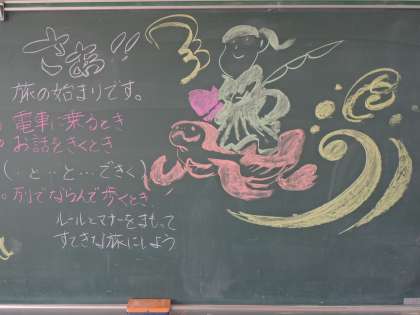 さあ!!
旅の始まりです。
。電車に乗るとき
。お話をきくとき
(‥と‥と…できく)
。列でならんで歩くとき、
ルールとマナーをまもって
すてきな旅にしよう